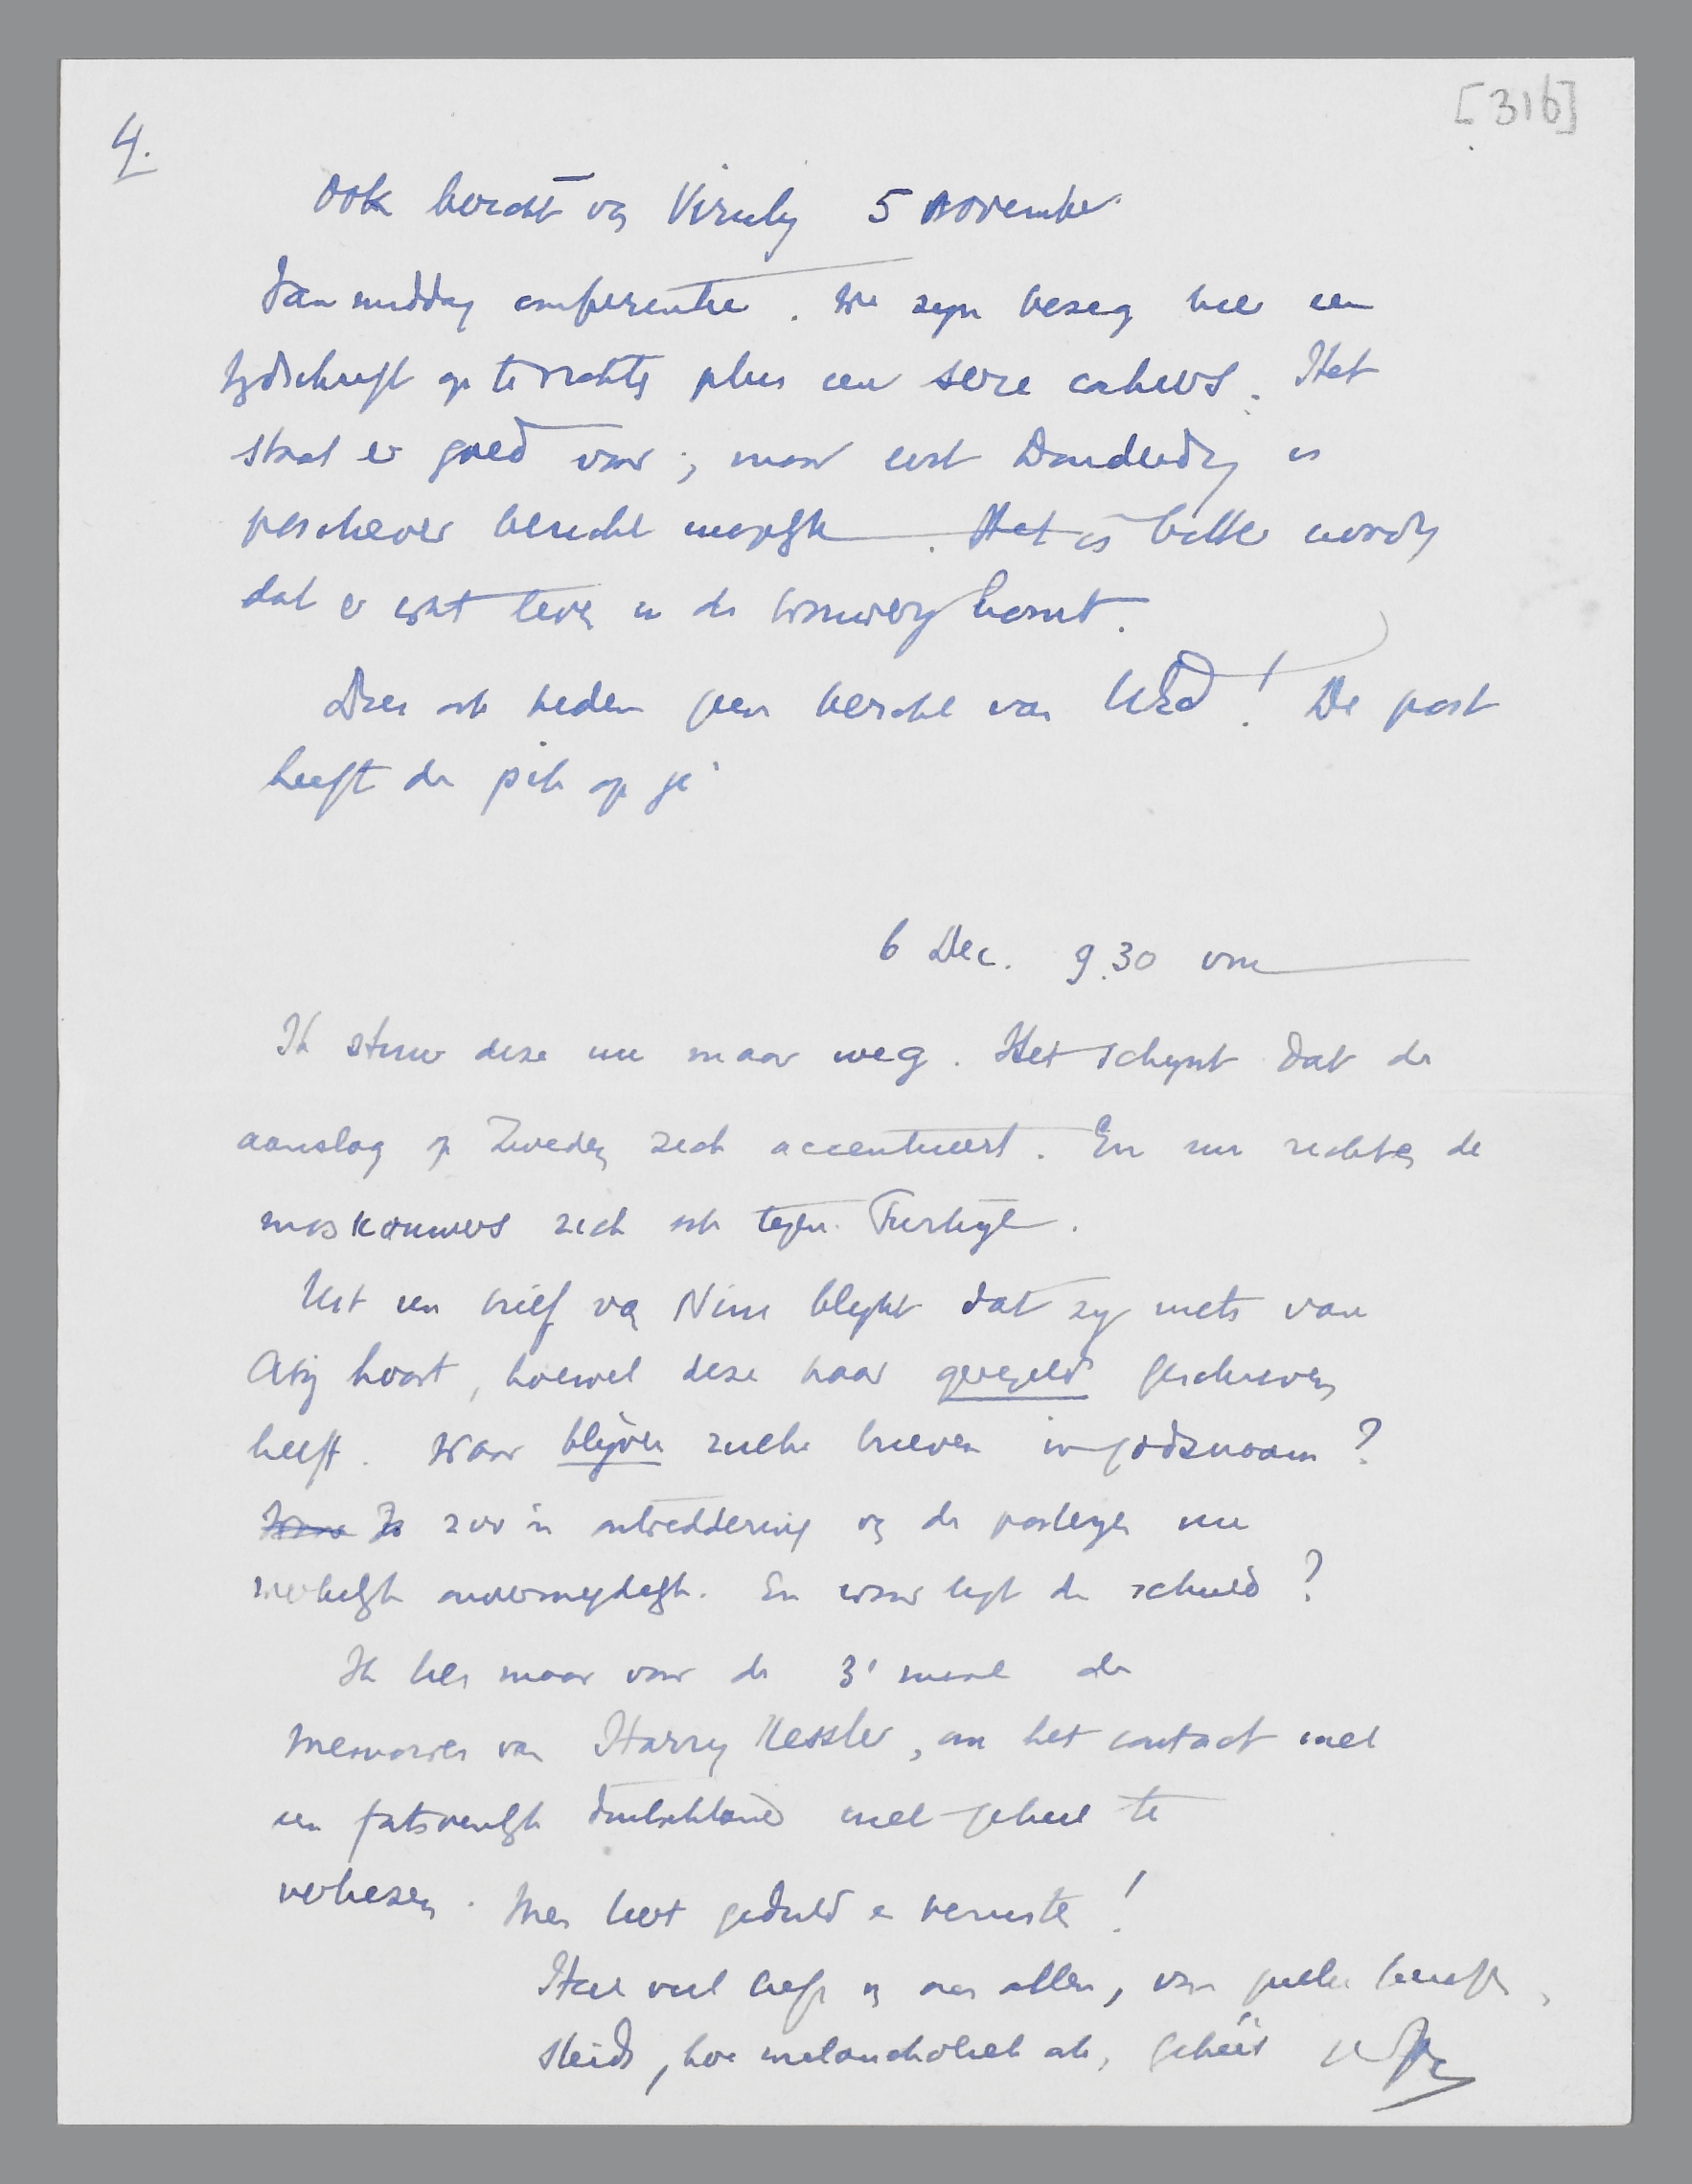 [316]
4.
Ook bericht van Viruly 5 november
Van middag conferentie. We zijn bezig hier een
tijdschrift op te richten plus een serie cahiers. Het
staat er goed voor; maar eerst Donderdag is
bericht mogelijk. Het is bitter noodig
dat er wat leven in de komt.
Dus ook heden geen bericht van U.! De post
heeft de pik op je
6 Dec. 9.30 vm
Ik stuur deze nu maar weg. Het schijnt dat de
aanslag op Zweden zich accentueert. En nu richten de
moskouwers zich ook tegen Turkije.
Uit een brief van Nini blijkt dat zij niets van
hoort, hoewel deze haar geregeld geschreven
heeft. Waar blijven zulke brieven in godsnaam?
Is zoo'n ontreddering van de posterijen nu
werkelijk onvermijdelijk. En waar ligt de schuld?
Ik lees maar voor de 3e maal de
Memoires van Harry Kessler, om het contact met
een fatsoenlijk Duitschland niet geheel te
verliezen. Men leert geduld en berusten!
Heel veel liefs van ons allen, voor jullie
steeds, hoe melancholiek ook, geheel